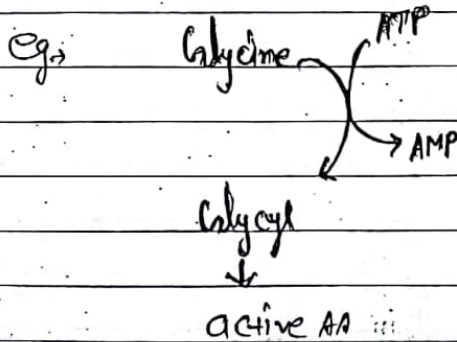 eg→ Glycine ATP
AMP
Glycyl
↓
active AA